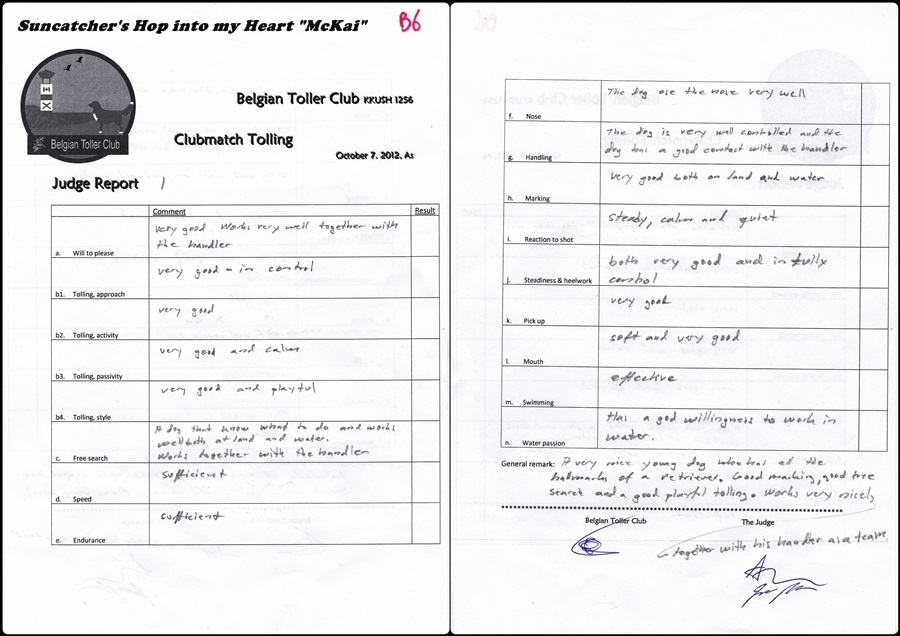 Suncatcher's Hop into my Heart "McKai"
B6
Belgian Toller Club
Belgian Toller Club KKUSH 1256
Clubmatch Tolling
October 7. 2012, As
Judge Report 1
Comment
Result
very good. Works very well together with
the handler
a. Will to please
very good - in control
b1. Tolling, approach
very good
b2. Tolling, activity
very good and calm
b3. Tolling, passivity
very good and playful
b4. Tolling, style
A dog that know what to do and works
well both at land and water.
Works together with the handler
c. Free search
sufficient
d. Speed
sufficient
e. Endurance
The dog use the nose very well
f. Nose
The dog is very well controlled and the
dog has a good contact with the handler
g. Handling
Very good both on land and water
h. Marking
steady, calm and quiet
i. Reaction to shot
both very good and in fully
control
j. Steadiness & heelwork
very good
k. Pick up
soft and very good
l. Mouth
effective
m. Swimming
Has a god willingness to work in
water.
n. Water passion
General remark: A very nice young dog who has all the
hallmarks of a retriever. Good marking, good free
search and a good playful tolling. Works very nicely
Belgian Toller Club
The Judge
together with his handler as a team.